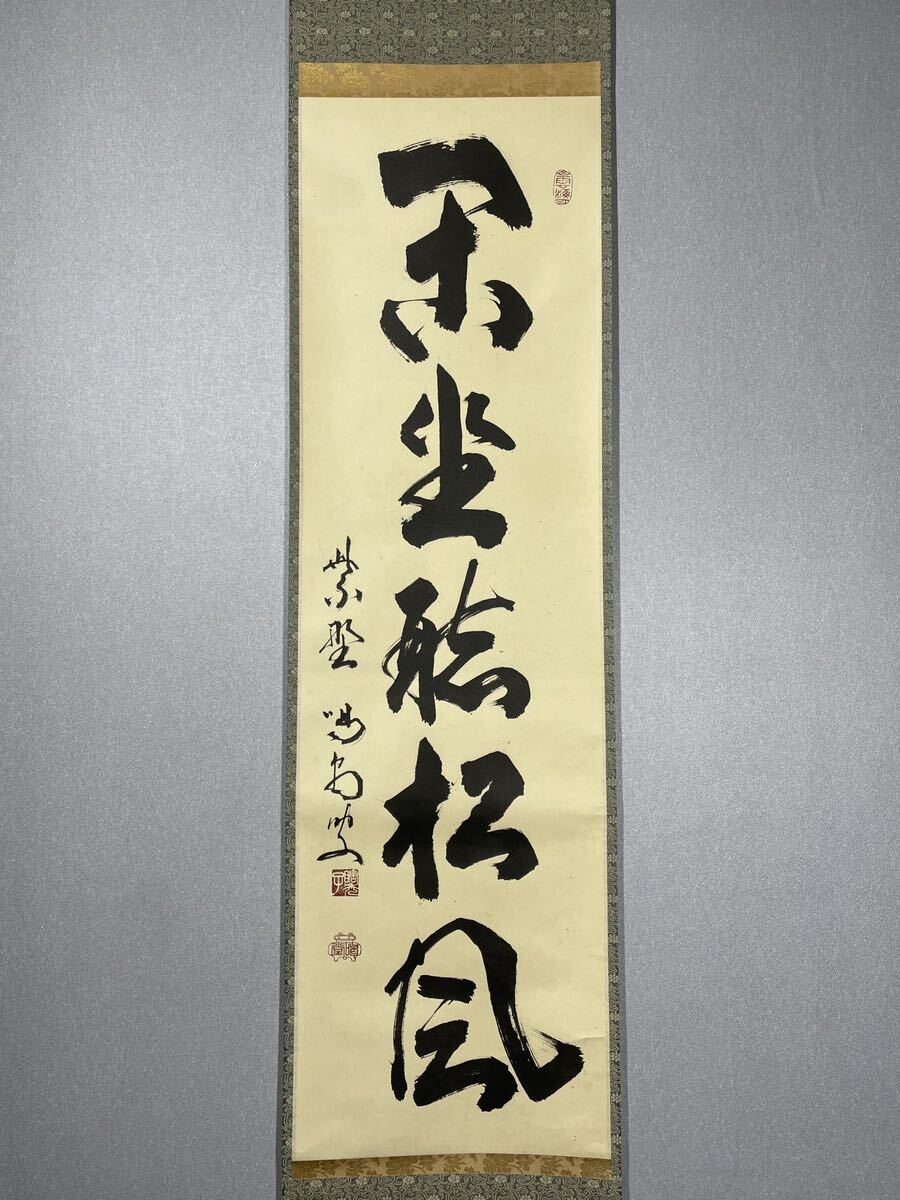 閑坐聴松風
紫野